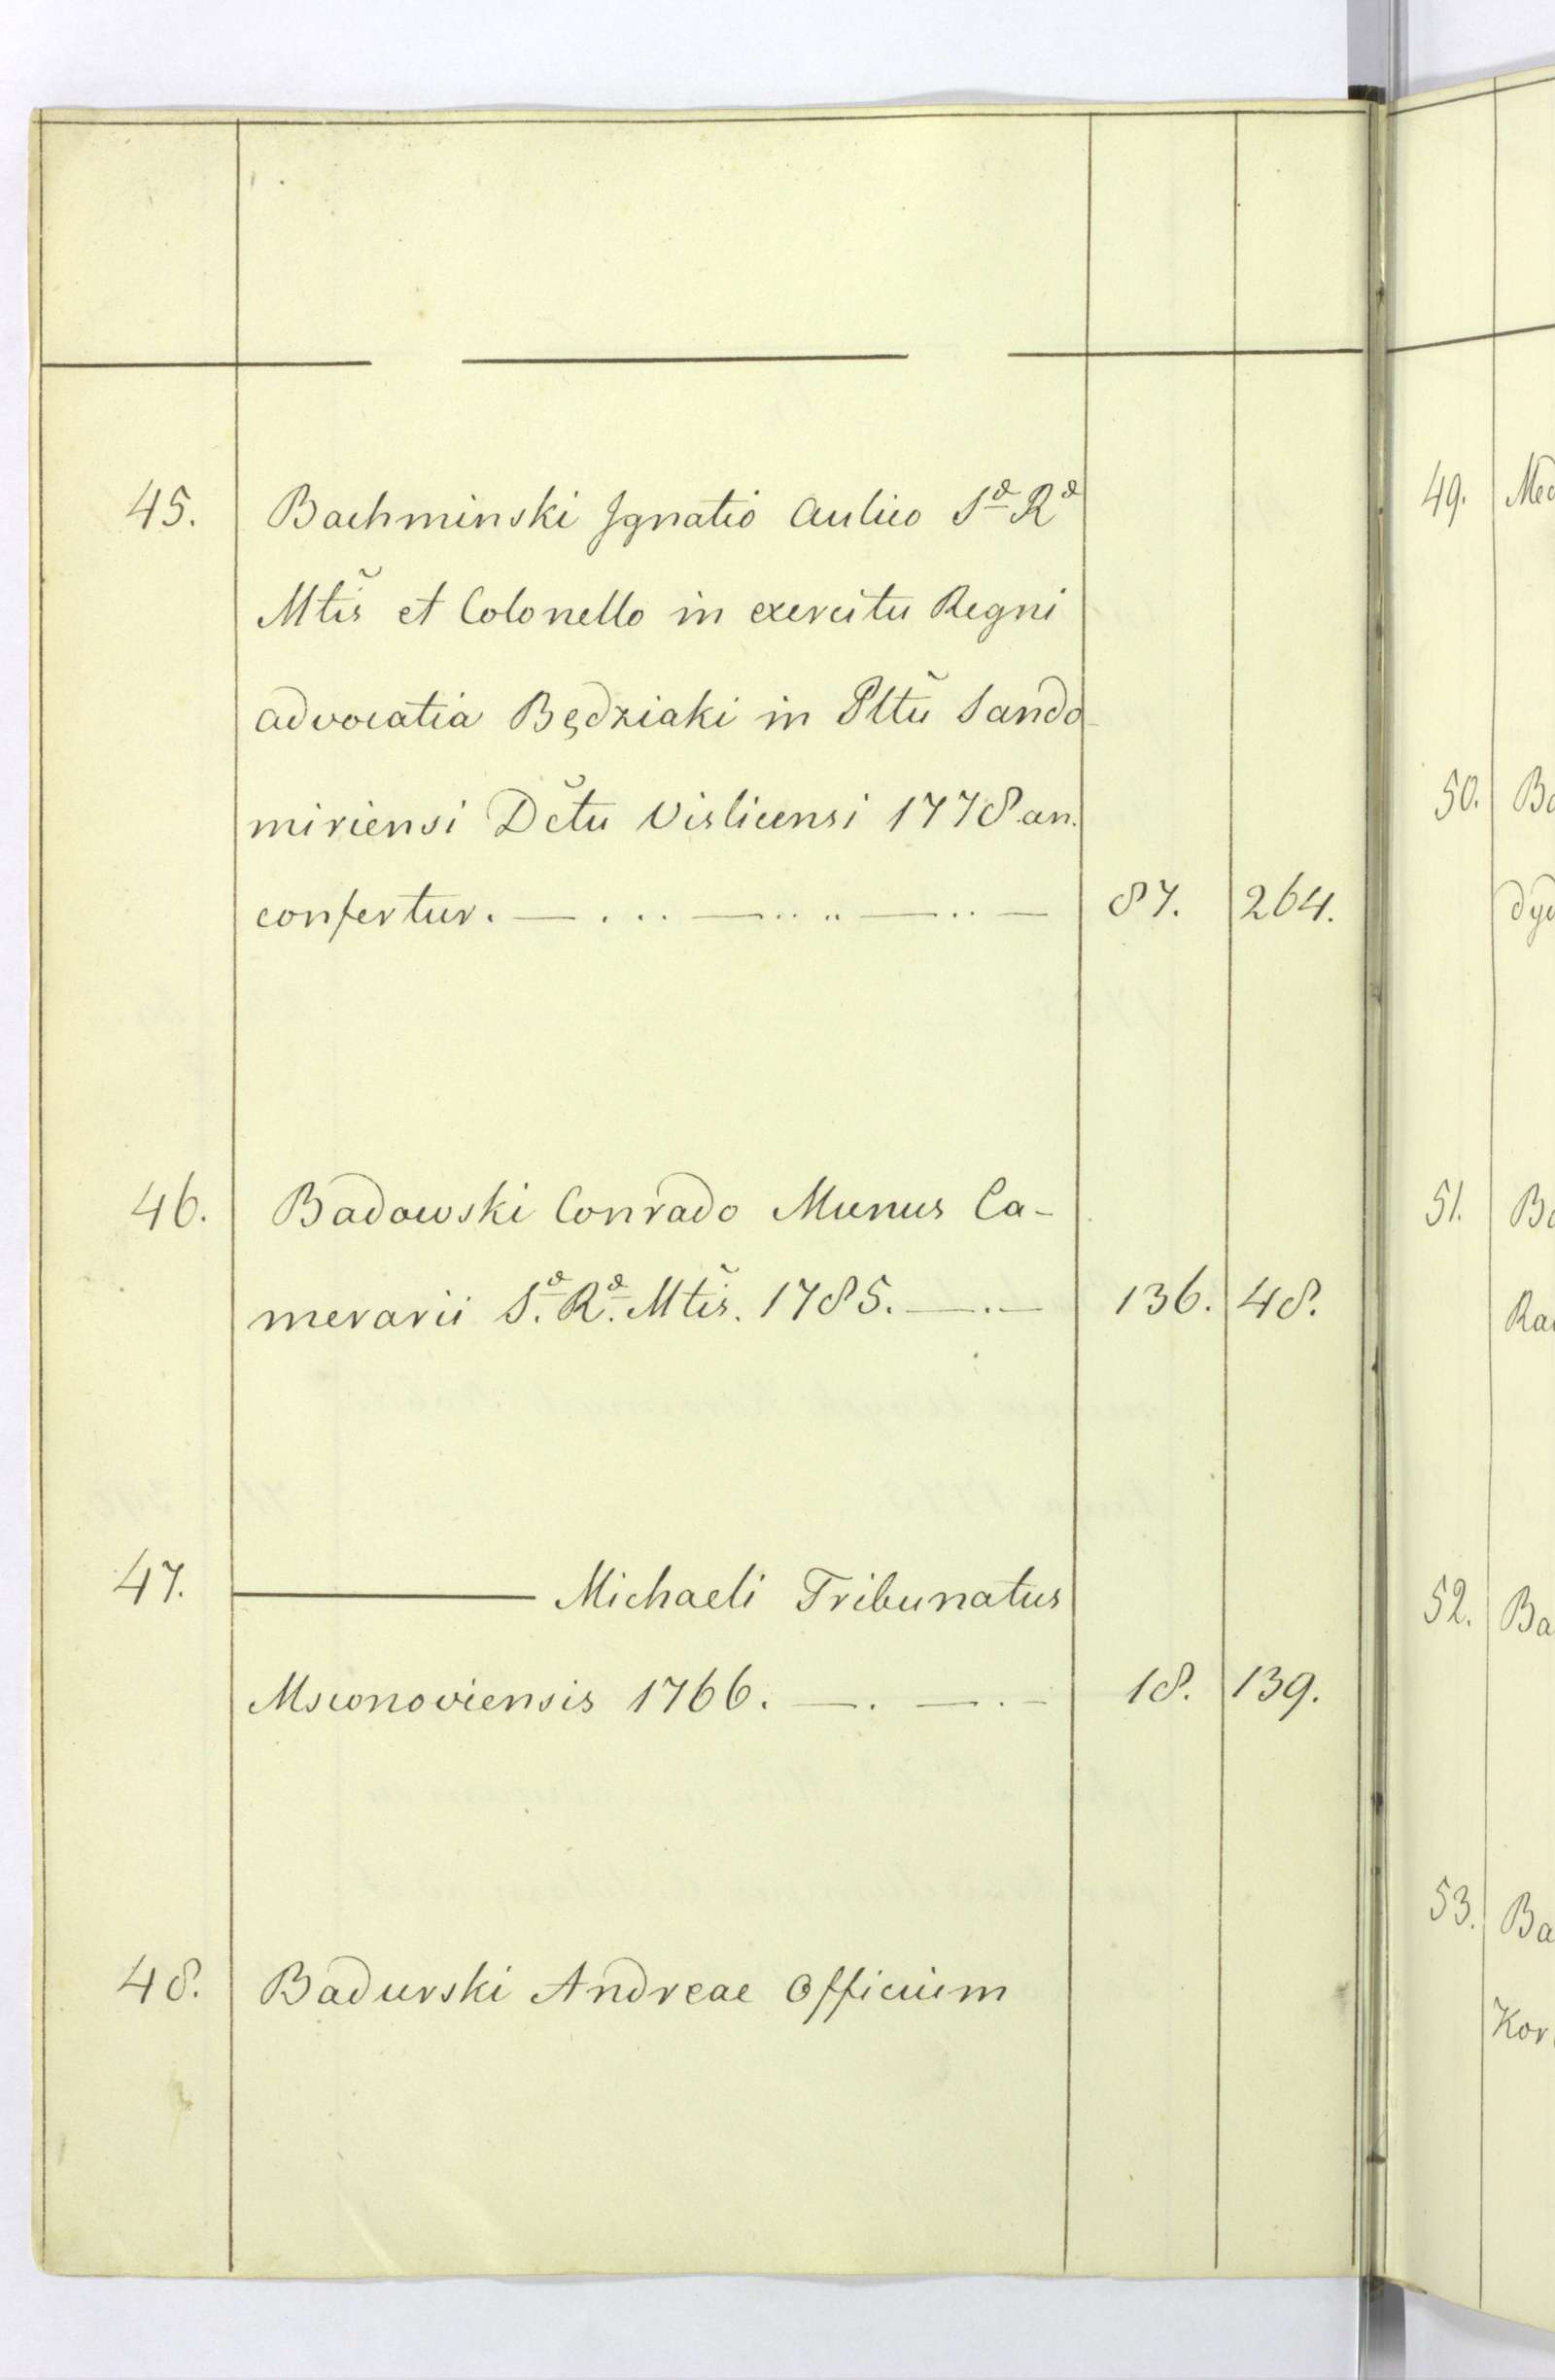 45. Bachminski Ignatio Aulico Sæ Ræ
Mtĭs et Colonello in exercitu Regni
advocatia Będziaki in Pltŭ Sando
miriensi Dĕtu Vislicensi 1778 an.
confertur. — . . . — . . . . — . . — 87. 264.
46. Badowski Conrado Munus Ca-
merarii S.æ R.æ Mtĭs. 1785. — . — 136. 48.
47. ——— Michaeli Tribunatus
Msconoviensis 1766. — . — . — 18. 139.
48. Badurski Andreae Officium
49.
50.
51.
52. Ba
53. Ba